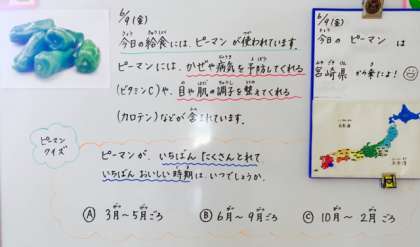 6/9(金)
今日の給食には、ピーマンが使われています。
ピーマンには、かぜや病気を予防してくれる
(ビタミンC)や、目や肌の調子を整えてくれる
(カロテン)などが含まれています。
ピーマン
クイズ
ピーマンが、いちばんたくさんとれて
いちばんおいしい時期は、いつでしょうか。
Ⓐ 3月～5月ごろ
Ⓑ 6月～9月ごろ
Ⓒ 10月～2月ごろ
6/9(金)
今日の ピーマン は
宮崎県から来たよ!